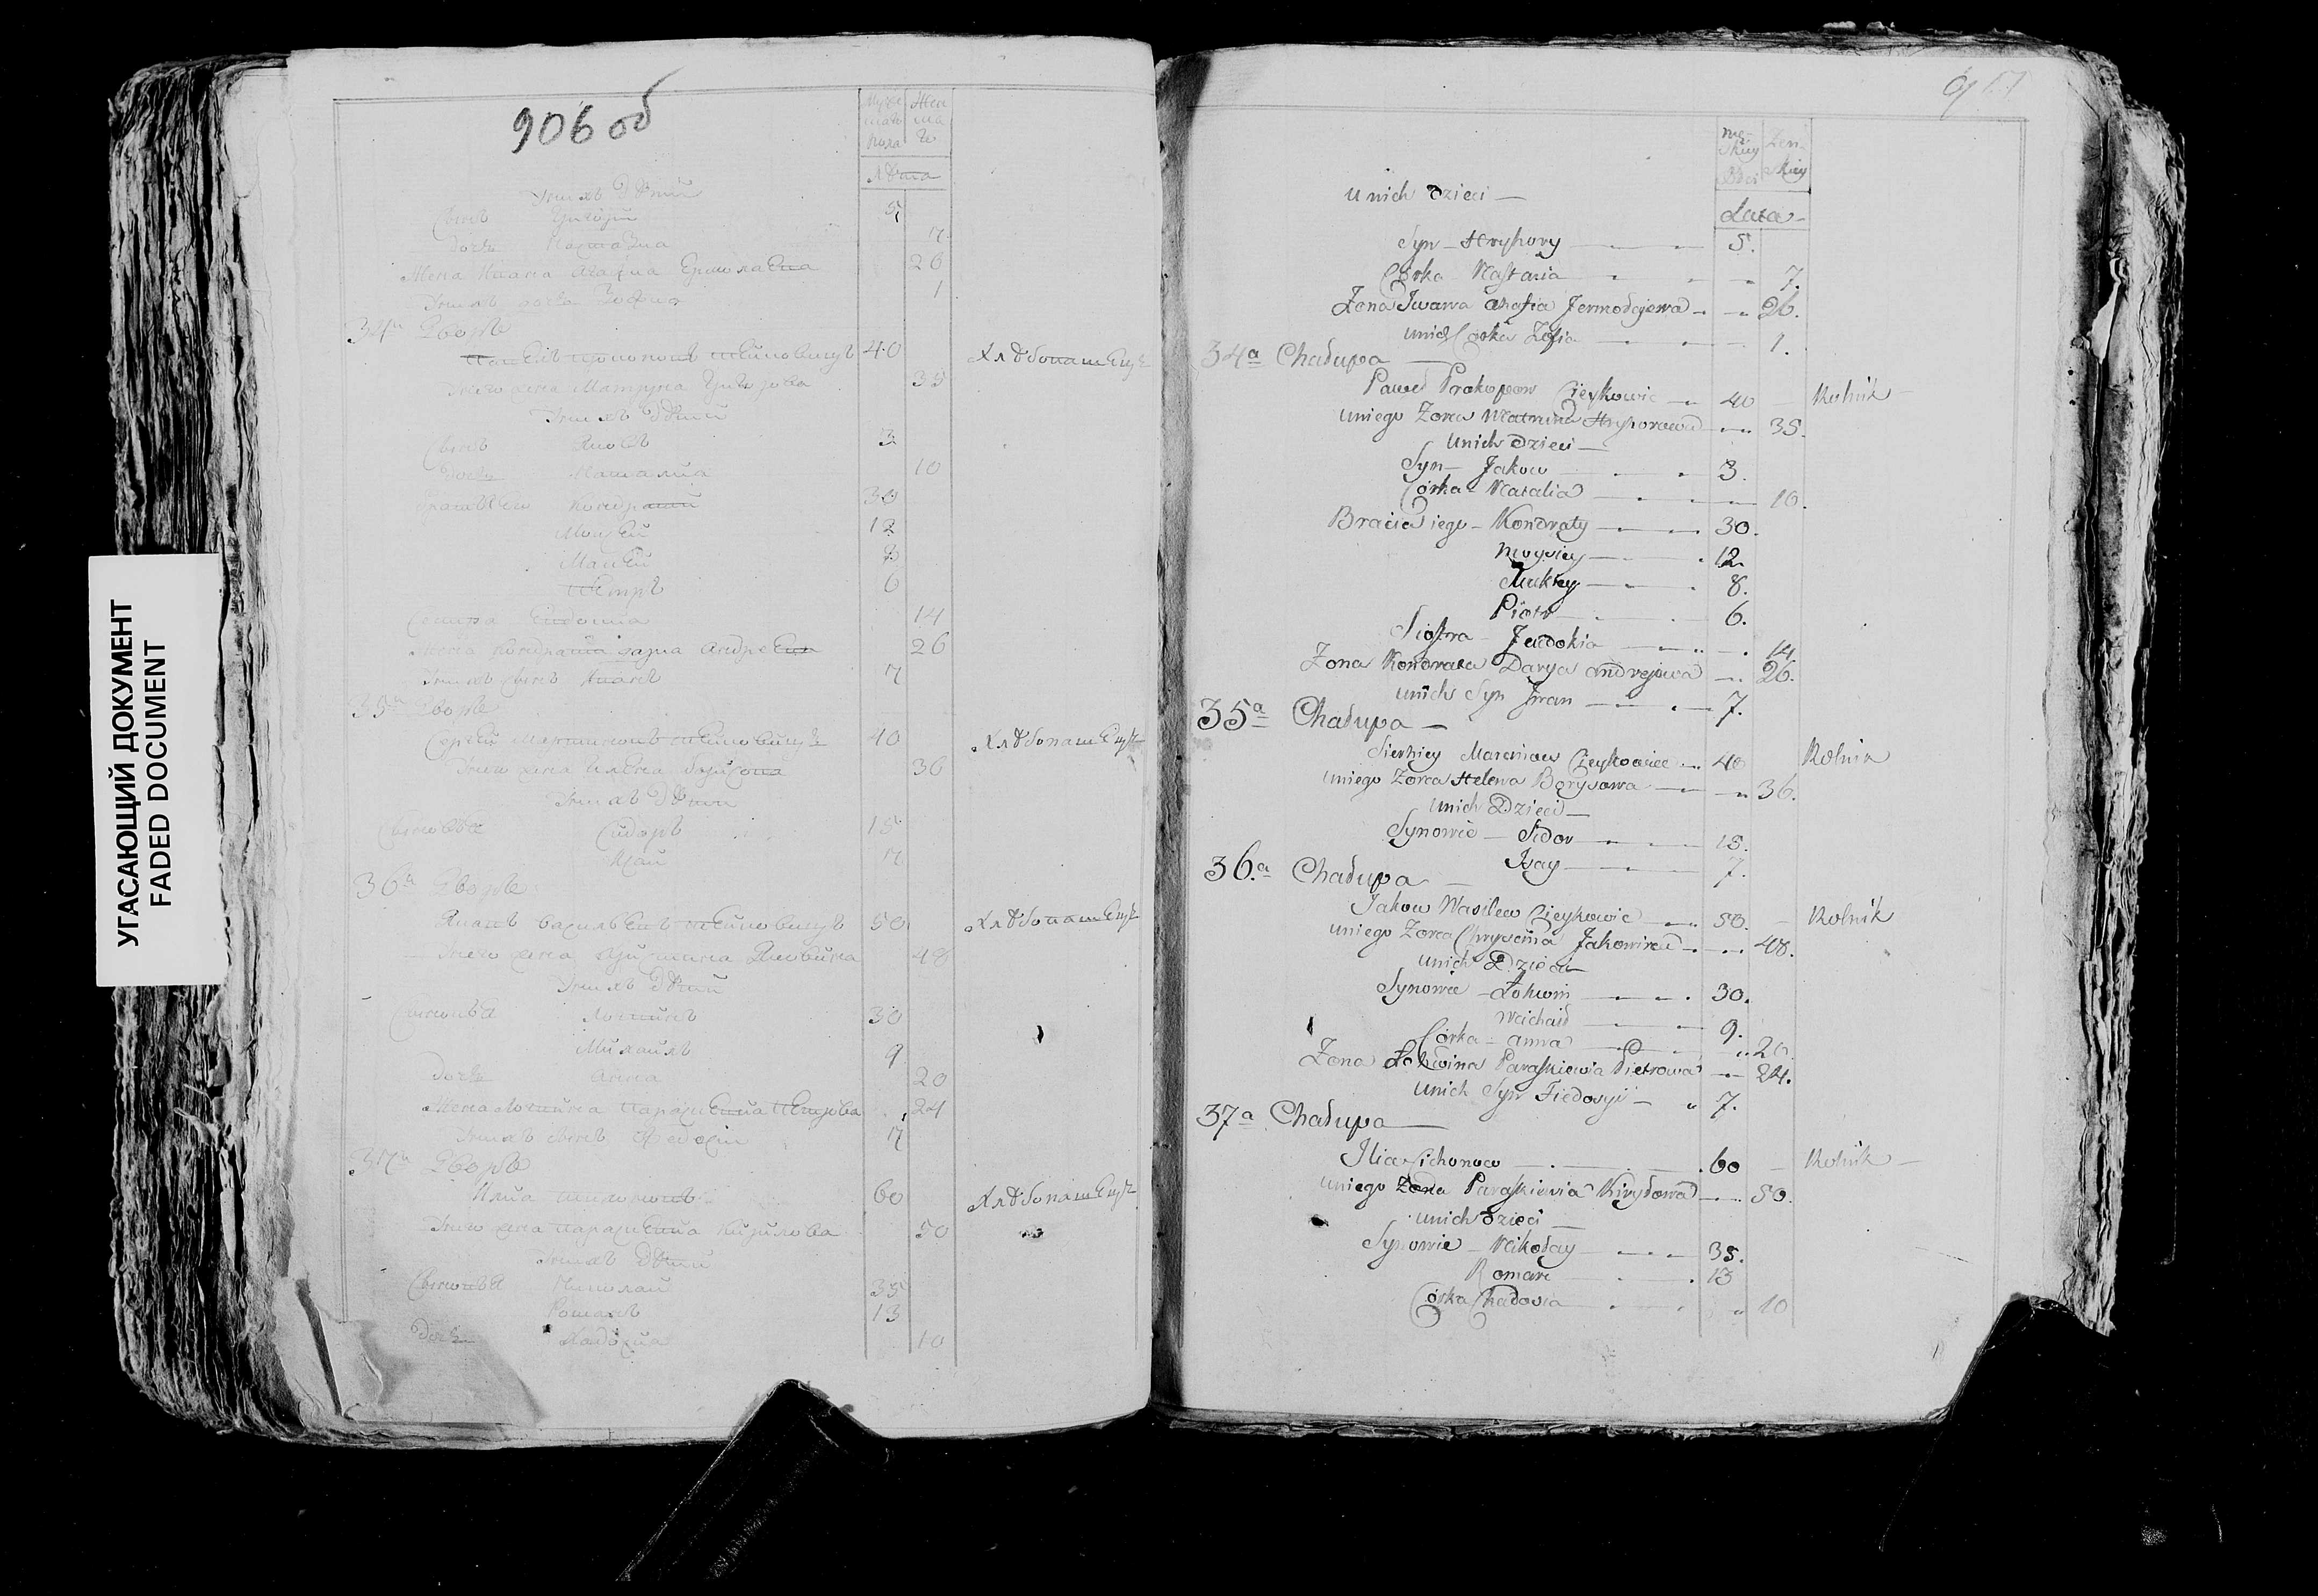 УГАСАЮЩИЙ ДОКУМЕНТ
FADED DOCUMENT
906 об
Лѣта
У нихъ дѣти
Сынъ Григорій 5
дочь Настазиа 7
Жена Ивана Агафиа Ермолаева 26
У нихъ дочь Зофиа 1
34й Дворъ
Павелъ Прокоповъ 40 Хлѣбопашецъ
У него жена Матруна Григорова 35
У нихъ дѣти
Сынъ Яковъ 3
дочь Наталиа 10
Братья его Кондратій 30
Мойсей 12
8
Петръ 6
Сестра Евдокиа 14
Жена Кондрата Дариа Андреева 26
У нихъ сынъ Иванъ 7
35й Дворъ
Сергей Мартиновъ 40 Хлѣбопашецъ
У него жена Илена Борисова 36
У нихъ дѣти
Сыновья Сидоръ 15
Исай 7
36й Дворъ
Васильевъ 50 Хлѣбопашецъ
У него жена 48
У нихъ дѣти
Сыновья 30
Михайлъ 9
дочь Анна 20
Жена Параскевиа Петрова 24
У нихъ сынъ Федосій 7
37й Дворъ
Илиа Тихоновъ 60 Хлѣбопашецъ
У него жена Параскевиа Кирилова 50
У нихъ дѣти
Сыновья Николай 35
Романъ 13
Дочь Хадосиа 10
U nich dzieci —
Lata
Syn — Hryhory 5.
Córka Nastazia 7.
Żona Iwana Ahafia Jermołajewa 26.
U nich Córka Zofia 1.
34a Chałupa —
Paweł Prokopow Cieykowic 40 — Rolnik —
U niego Zona Matruna Hryhorowa 35.
U nich Dzieci —
Syn — Jakow 3.
Córka Natalia 10.
Bracia iego — Kondraty 30.
Moysiey 12.
8.
Piotr 6.
Siostra — Jewdokia 14.
Zona Kondrata Darya Andrejewa 26.
U nich Syn Iwan 7.
35a Chałupa —
Sierhiey Marcinow Cieykowicz 40 Rolnik
U niego Zona Helena Borysowa 36.
U nich Dzieci —
Synowie — Sidor 15.
Isay 7.
36.a Chałupa —
Jakow Wasilew Cieykowic 50. — Rolnik
U niego Zona Chryscina 48.
U nich Dzieci —
Synowie — Łohwin 30.
Michaił 9.
Córka — Anna 20
Zona Łohwina Paraskiewia Pietrowa 24.
U nich Syn Fiedosyi 7.
37a Chałupa —
Ilia Cichonow 60 — Rolnik —
U niego Zona Paraskiewia Kiryłowa 50.
U nich dzieci —
Synowie — Nikołay 35.
Roman 13
Córka Chadosia 10